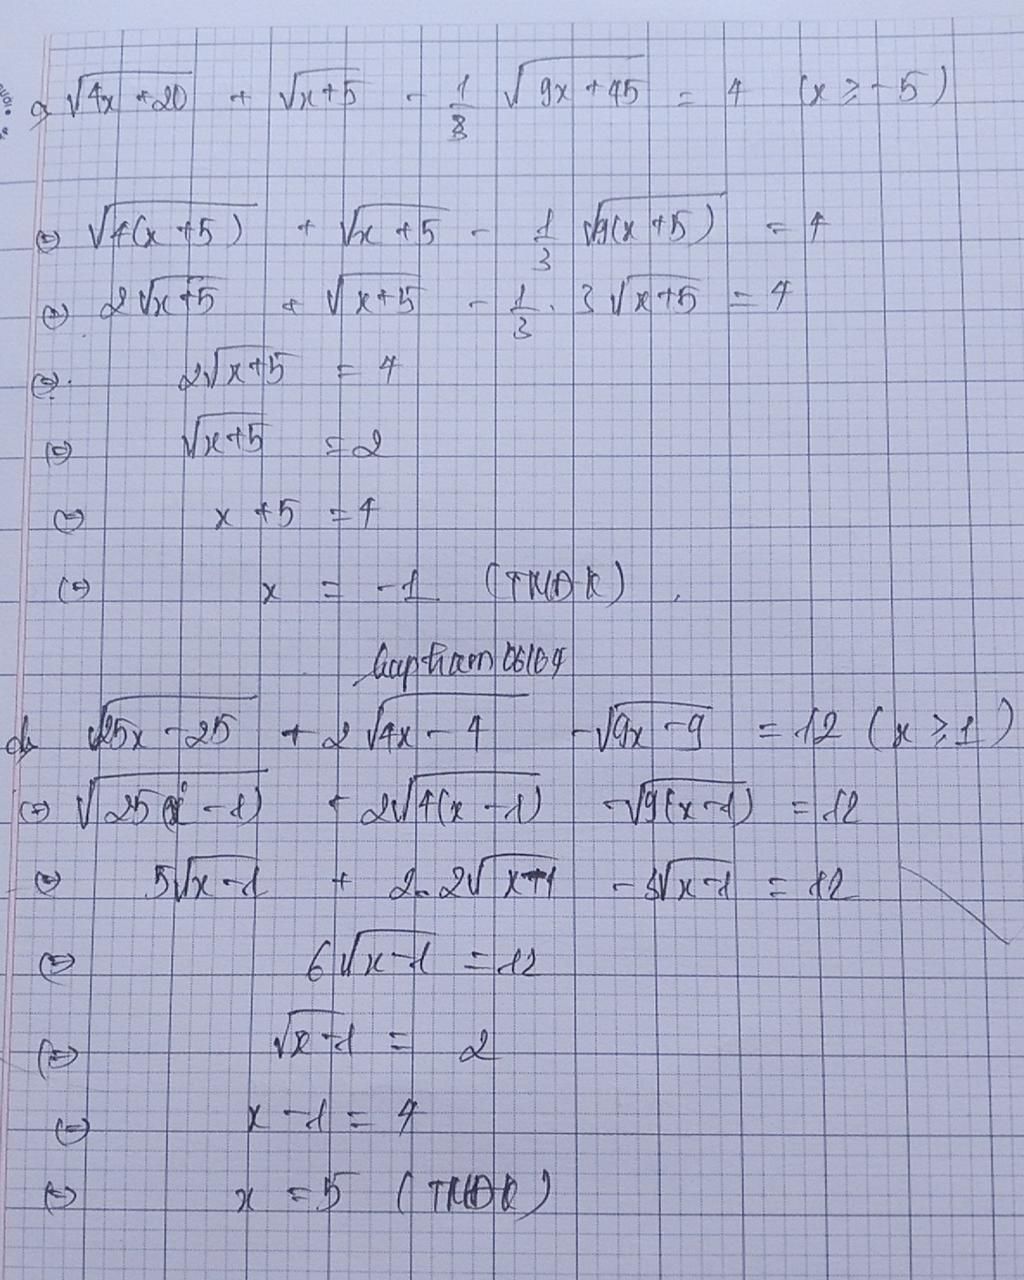 c) √(4x + 20) + √(x+5) - 1/3 √(9x + 45) = 4 (x ≥ -5)
(=) √(4(x +5)) + √(x +5) - 1/3 √(9(x +5)) = 4
(=) 2√(x+5) + √(x+5) - 1/3 . 3√(x+5) = 4
(=) 2√(x+5) = 4
(=) √(x+5) = 2
(=) x +5 = 4
(=) x = -1 (TMĐK)
d) √(25x - 25) + 2√(4x - 4) - √(9x - 9) = 12 (x ≥ 1)
(=) √(25(x - 1)) + 2√(4(x - 1)) - √(9(x - 1)) = 12
(=) 5√(x-1) + 2. 2√(x-1) - 3√(x-1) = 12
(=) 6√(x-1) = 12
(=) √(x-1) = 2
(=) x -1 = 4
(=) x = 5 (TMĐK)